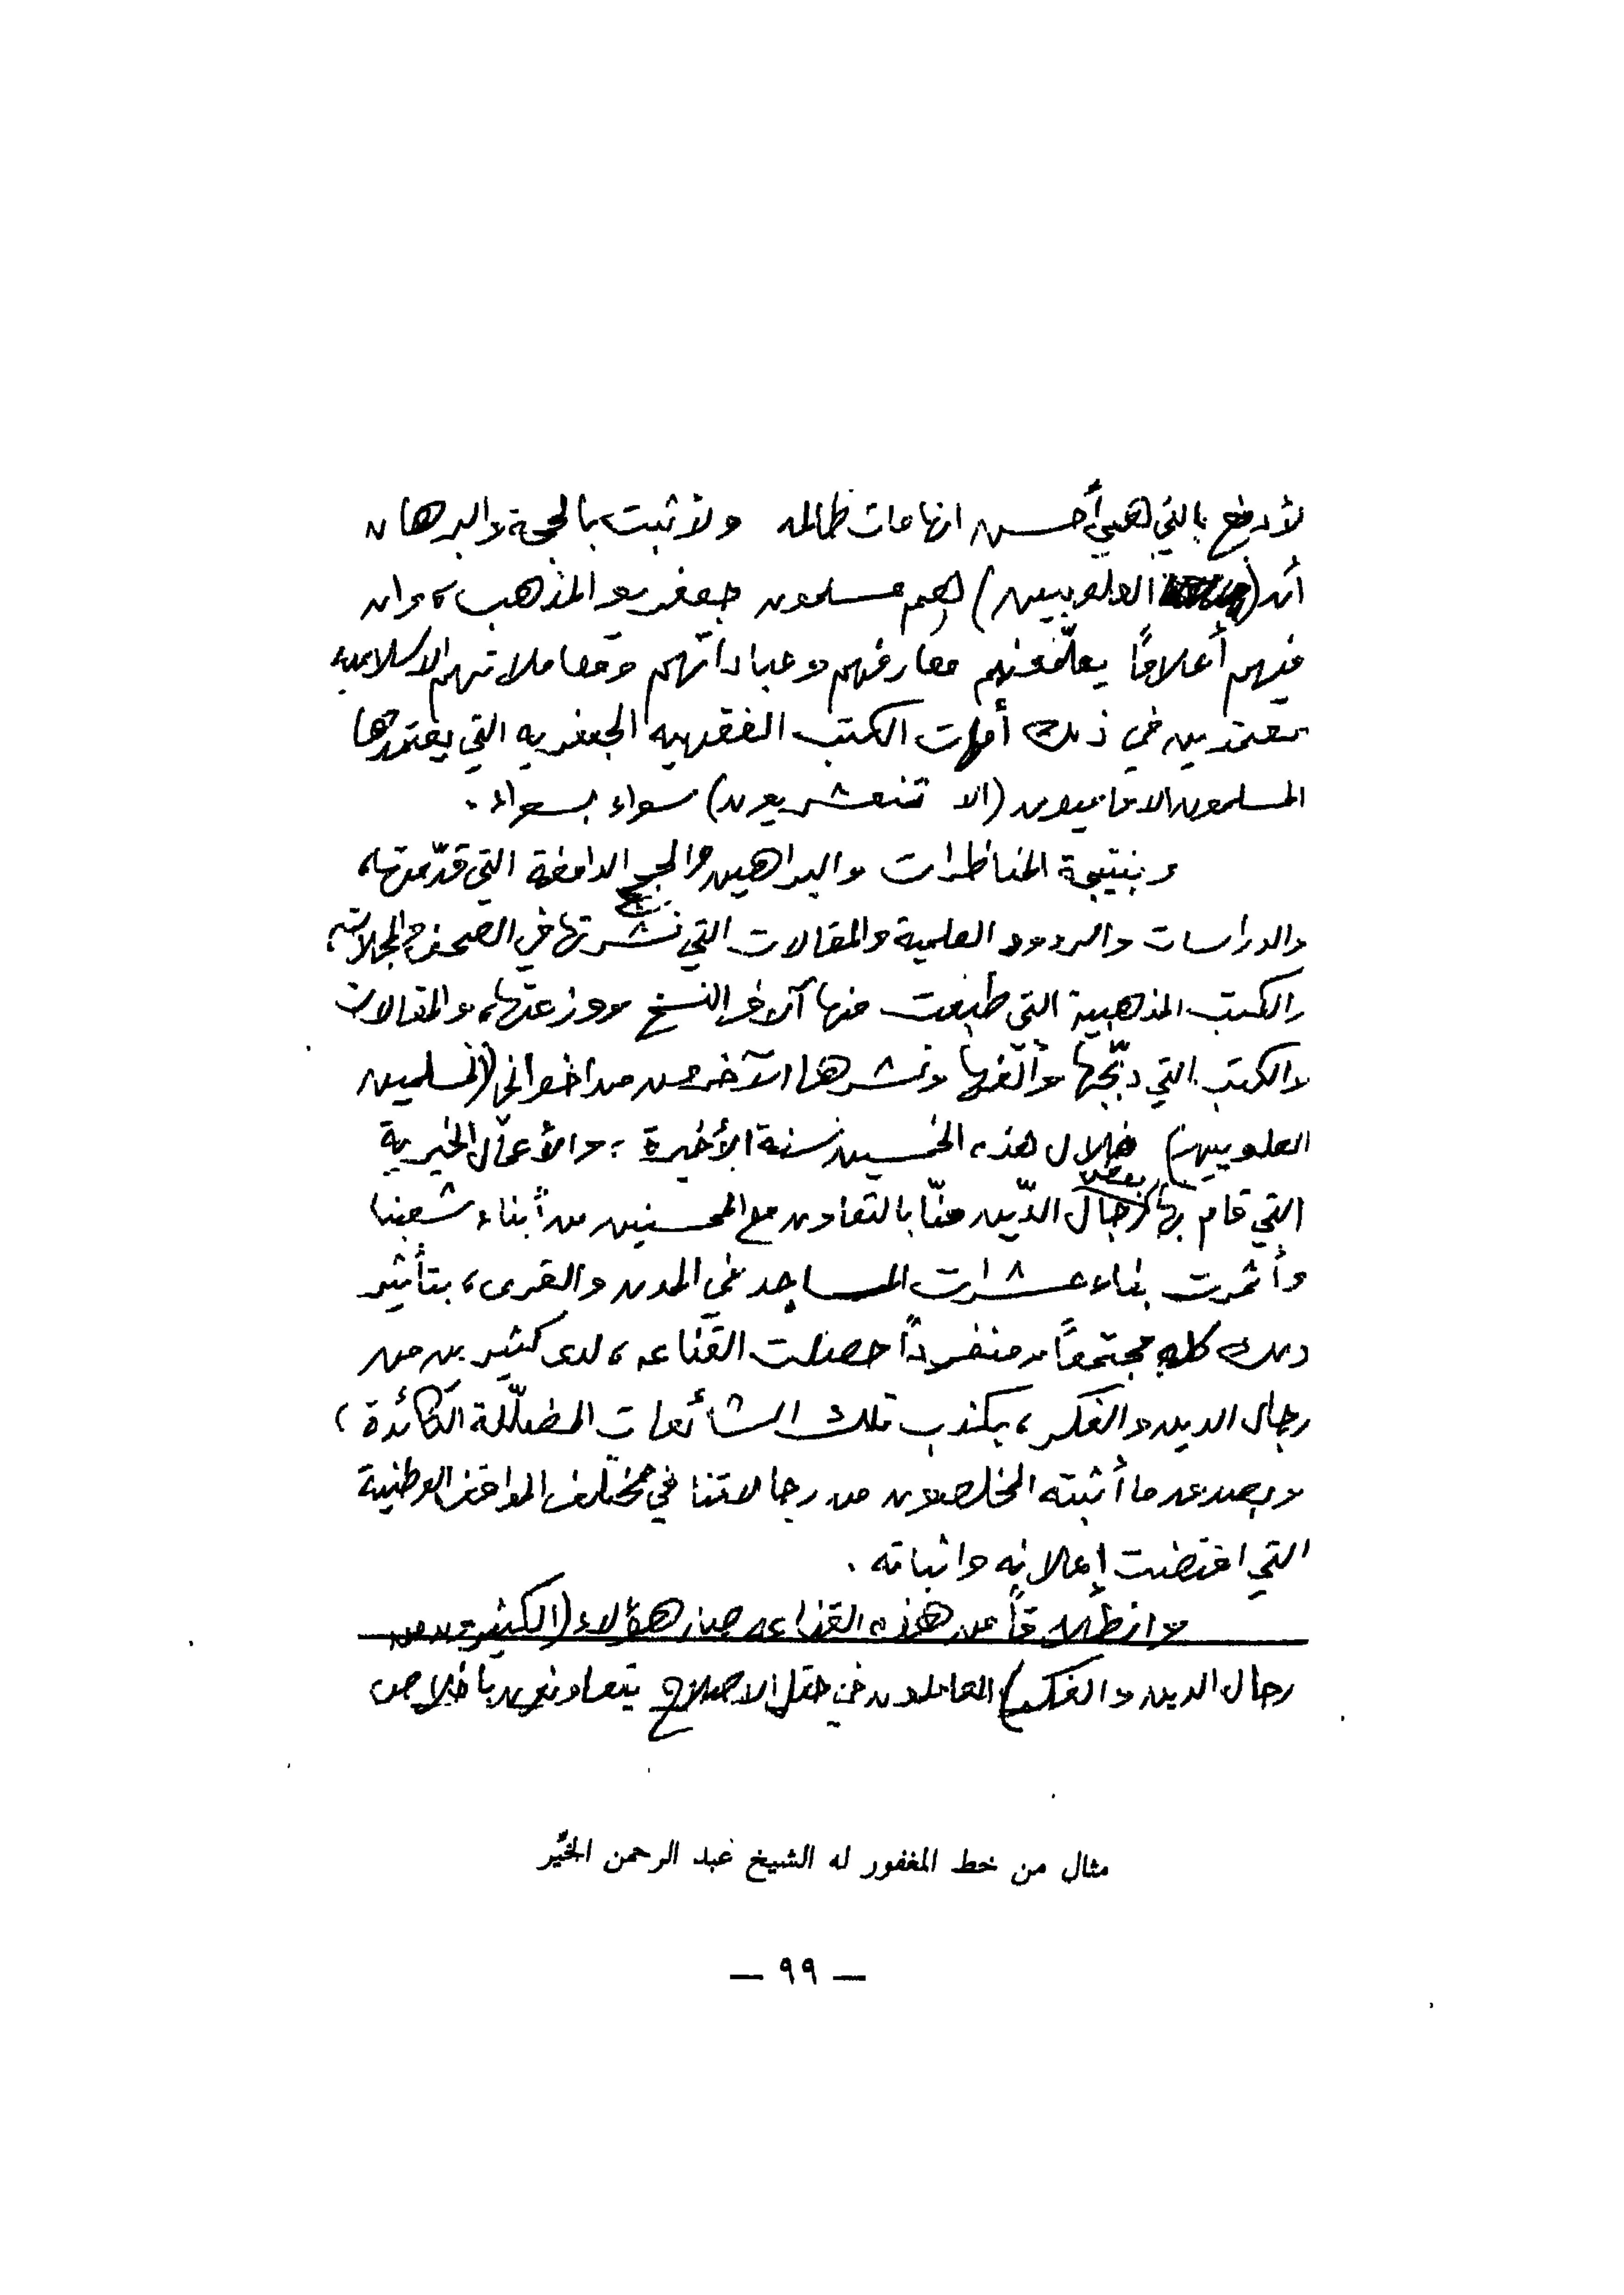 لأدفع بالتي هي أحسن اتهامات ظالمه ولأثبت بالحجة والبرهان
أن (العلويين) هم مسلمون جعفريو المذهب، وان
فيهم أعلامًا يعلّمونهم معارفهم وعباداتهم ومعاملاتهم الاسلاميه
معتمدين في ذلك أمهات الكتب الفقهيه الجعفريه التي يعتمدها
المسلمون الاماميون (الا ثنعشريون) سواء بسواء.
وبنتيجة المناظرات والبراهين والحجج الدامغة التي قدّمتها،
والدراسات والردود العلمية والمقالات التي نشرتها في الصحف والمجلات،
والكتب المذهبية التي طبعت منها آلاف النسخ ووزعتها، والمقالات
والكتب التي دبّجها وألّفها ونشرها الآخرون من اخواني (المسلمين
العلويين) خلال هذه الخمسين سنة الأخيرة؛ والأعمال الخيرية
التي قام بها بعض رجال الدّين منّا بالتعاون مع المحسنين من أبناء شعبنا
وأثمرت بناء عشرات المساجد في المدن والقرى، بتأثير
ذلك كله مجتمعًا ومنفردًا حصلت القناعه، لدى كثيرين من
رجال الدين والفكر، بكذب تلك الشائعات المضلّلة الكائدة،
وبصدق ما أثبته المخلصون من رجالاتنا في مختلف المواقف الوطنية
التي اقتضت إعلانه واثباته.
وانطلاقاً من هذه القناعه صار هؤلاء (الكثيرون من
رجال الدين والفكر) العاملون في حقل الاصلاح يتعاونون باخلاص
مثال من خط المغفور له الشيخ عبد الرحمن الخيّر
— ٩٩ —